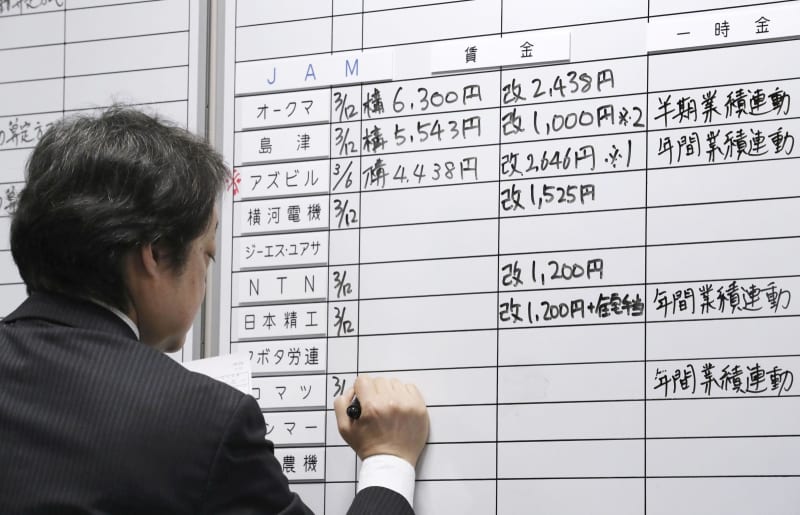 賃金 一時金
JAM
オークマ 3/12 構 6,300円 改 2,438円 半期業績連動
島津 3/12 構 5,543円 改 1,000円 ※2 年間業績連動
※ アズビル 3/6 構 4,438円 改 2,646円 ※1
横河電機 3/12 改 1,525円
ジーエス・ユアサ
NTN 3/12 改 1,200円
日本精工 3/12 改 1,200円+住宅手当 年間業績連動
ボタ労連
コマツ 3/1 年間業績連動
ンマー
農機